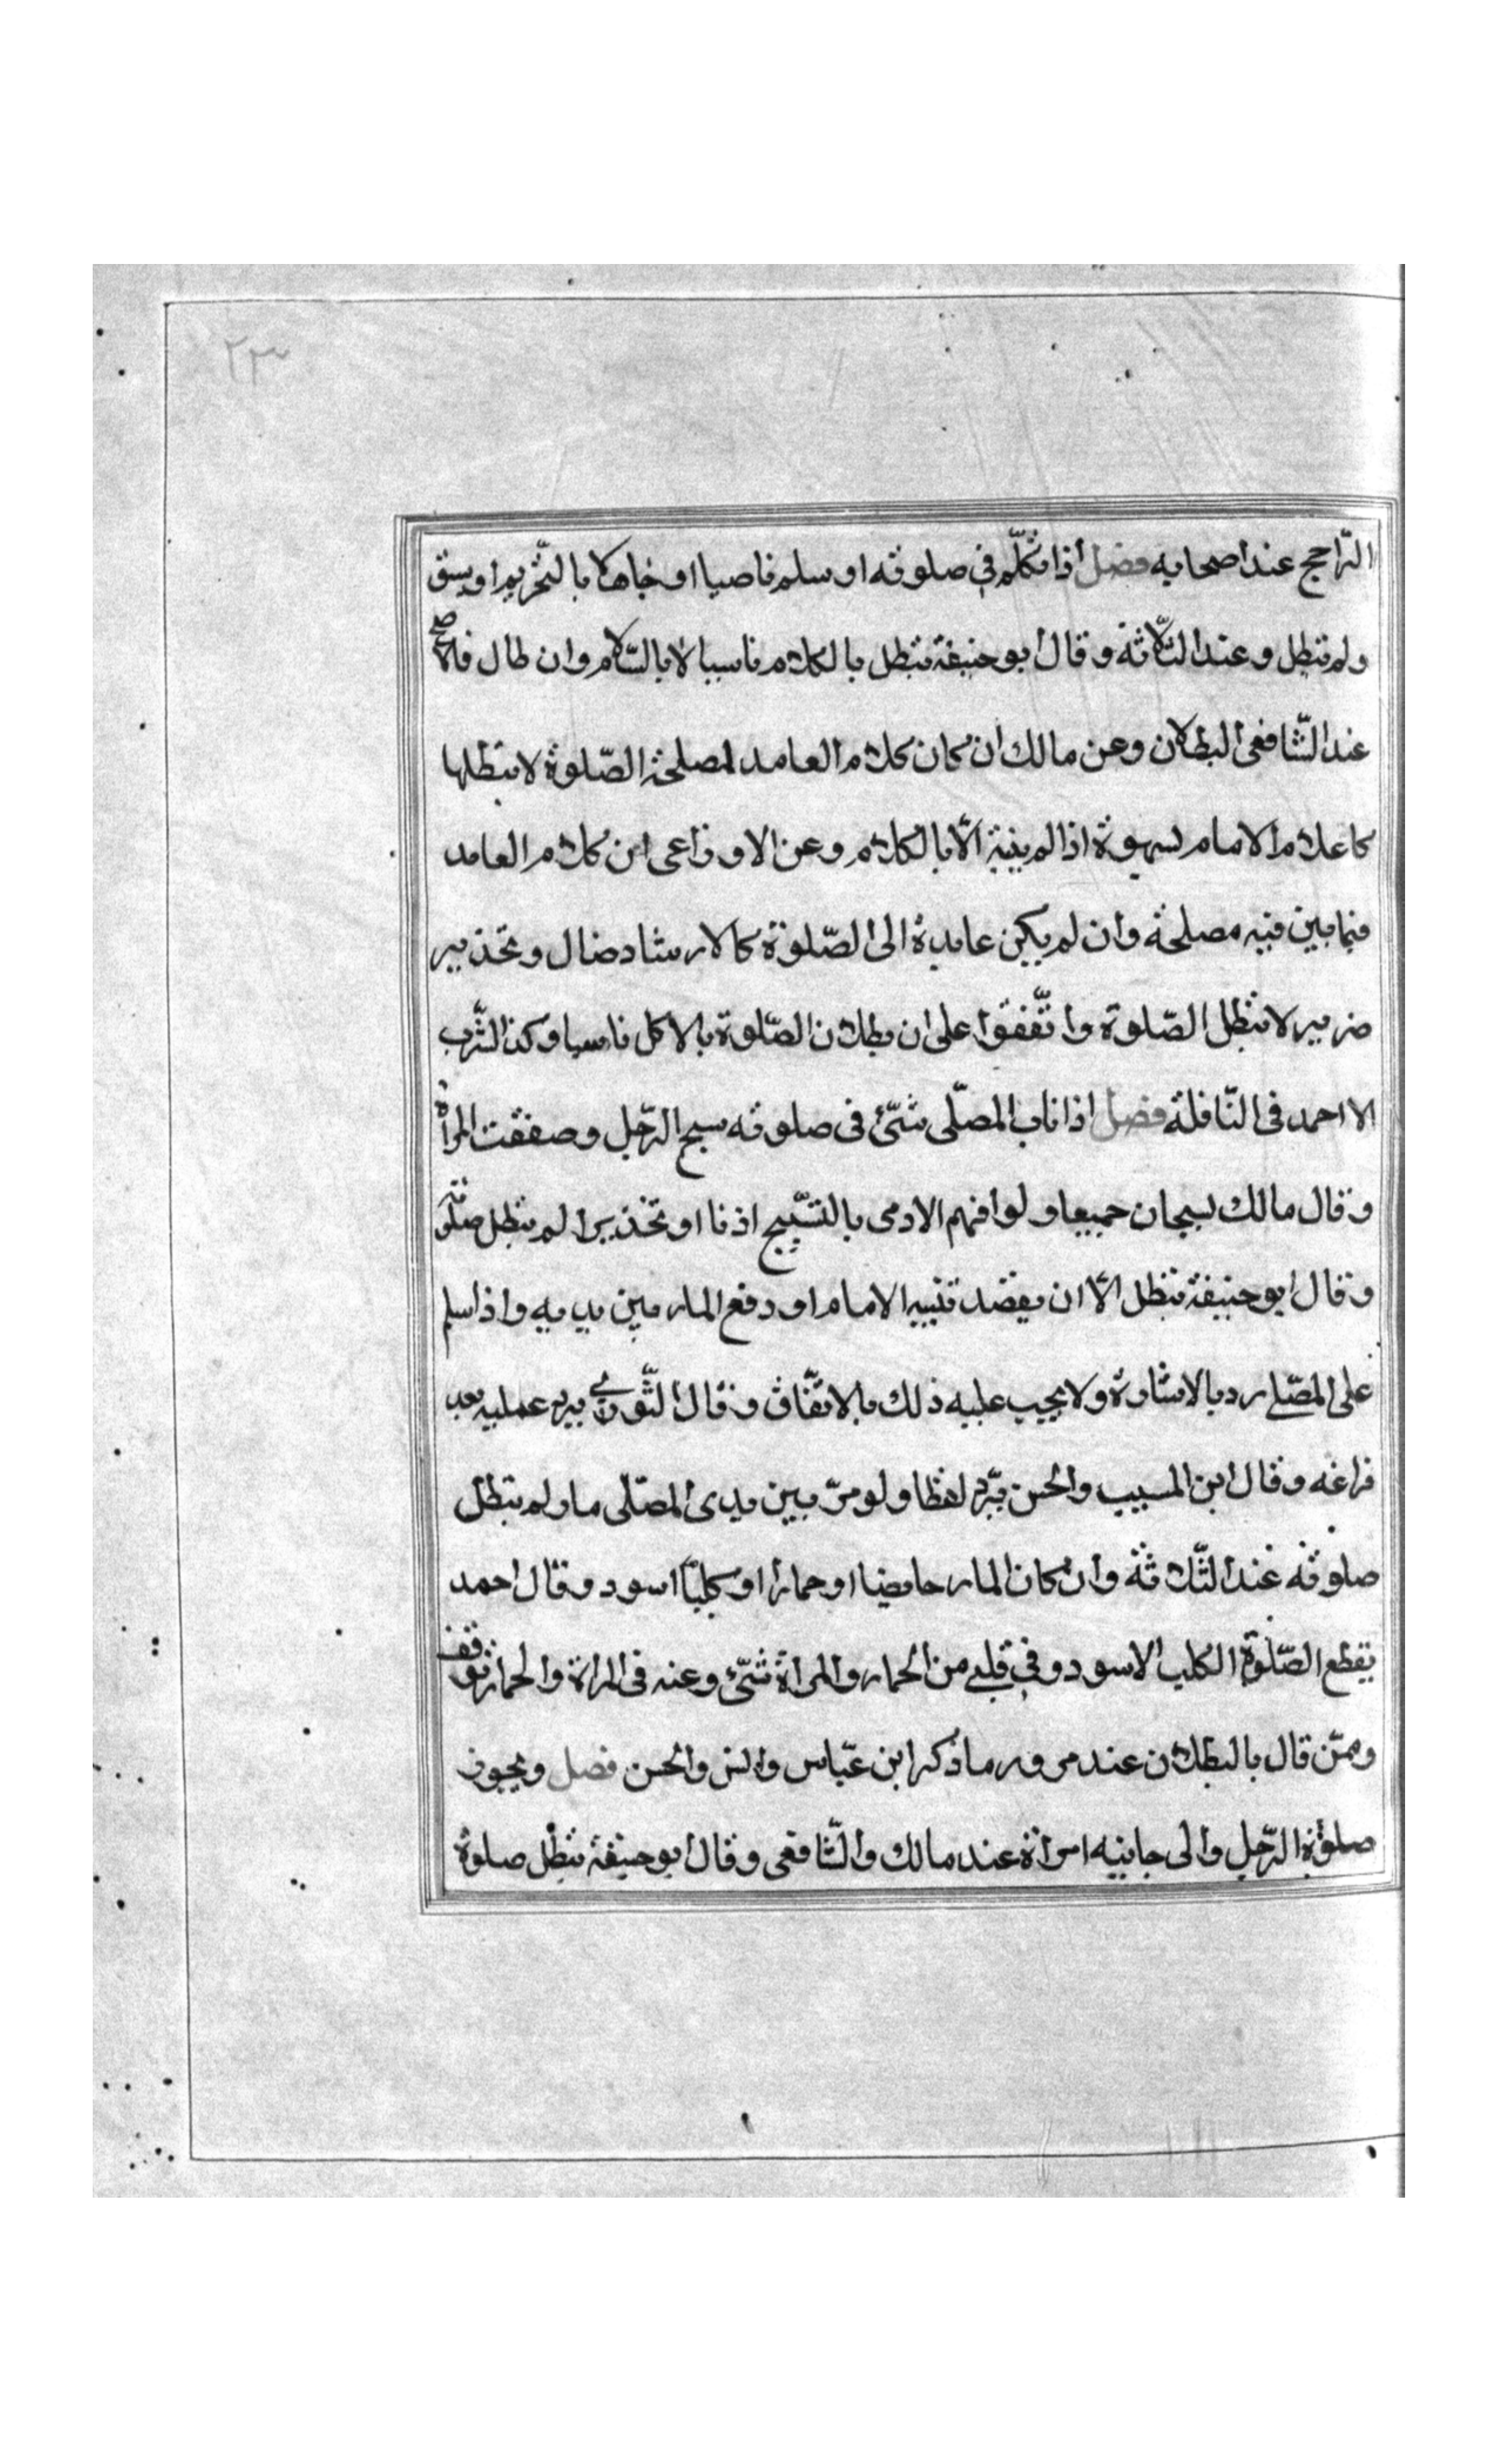 ٢٣
الرّاجح عند اصحابه فصل اذا تكلّم في صلوته او سلم ناصيا او جاهلا بالتّحريم او سبق
ولم تبطل وعند الثّلاثة وقال ابو حنيفة تبطل بالكلام ناسيا لا بالسّلام وان طال فالاصح
عند الشّافعى البطلان وعن مالك ان كان كلام العامد لمصلحة الصّلوة لا تبطلها
كاعلام الامام بسهوة اذا لم ينبّه الّا بالكلام وعن الاوزاعى ان كلام العامد
فيما بين فيه مصلحة وان لم يكن عايدة الى الصّلوة كالارشاد ضال وتحذير
ضرير لا تبطل الصّلوة واتّفقوا على ان بطلان الصّلوة بالاكل ناسيا وكذا الشّرب
الا احمد فى النّافلة فصل اذا ناب المصّلى شىّء فى صلوته سبح الرّجل وصفقت المرأة
وقال مالك يسبحان جميعا ولو افهم الادمى بالتسّبيح اذنا او تحذيرا لم تبطل صلوته
وقال ابو حنيفة تبطل الّا ان يقصد تنبيه الامام او دفع المار بين يديه واذا سلم
على المصّلى رد بالاشارة ولا يجب عليه ذلك بالاتّفاق وقال الثّورى يرد عمليه بعد
فراغه وقال ابن المسيب والحسن يرّد لفظا ولو مرّ بين يدى المصّلى مار لم تبطل
صلوته عند الثّلاثة وان كان المار حايضا او حمارا او كلبا اسود وقال احمد
يقطع الصّلوة الكلب الاسود وفي قلبى من الحمار والمرأة شىّء وعنه فى المراة والحمار توقف
وممّن قال بالبطلان عند مرور ما ذكر ابن عبّاس وانس والحسن فصل ويجوز
صلوة الرّجل والى جانبه امراة عند مالك والشّافعى وقال ابو حنيفة تبطل صلوة